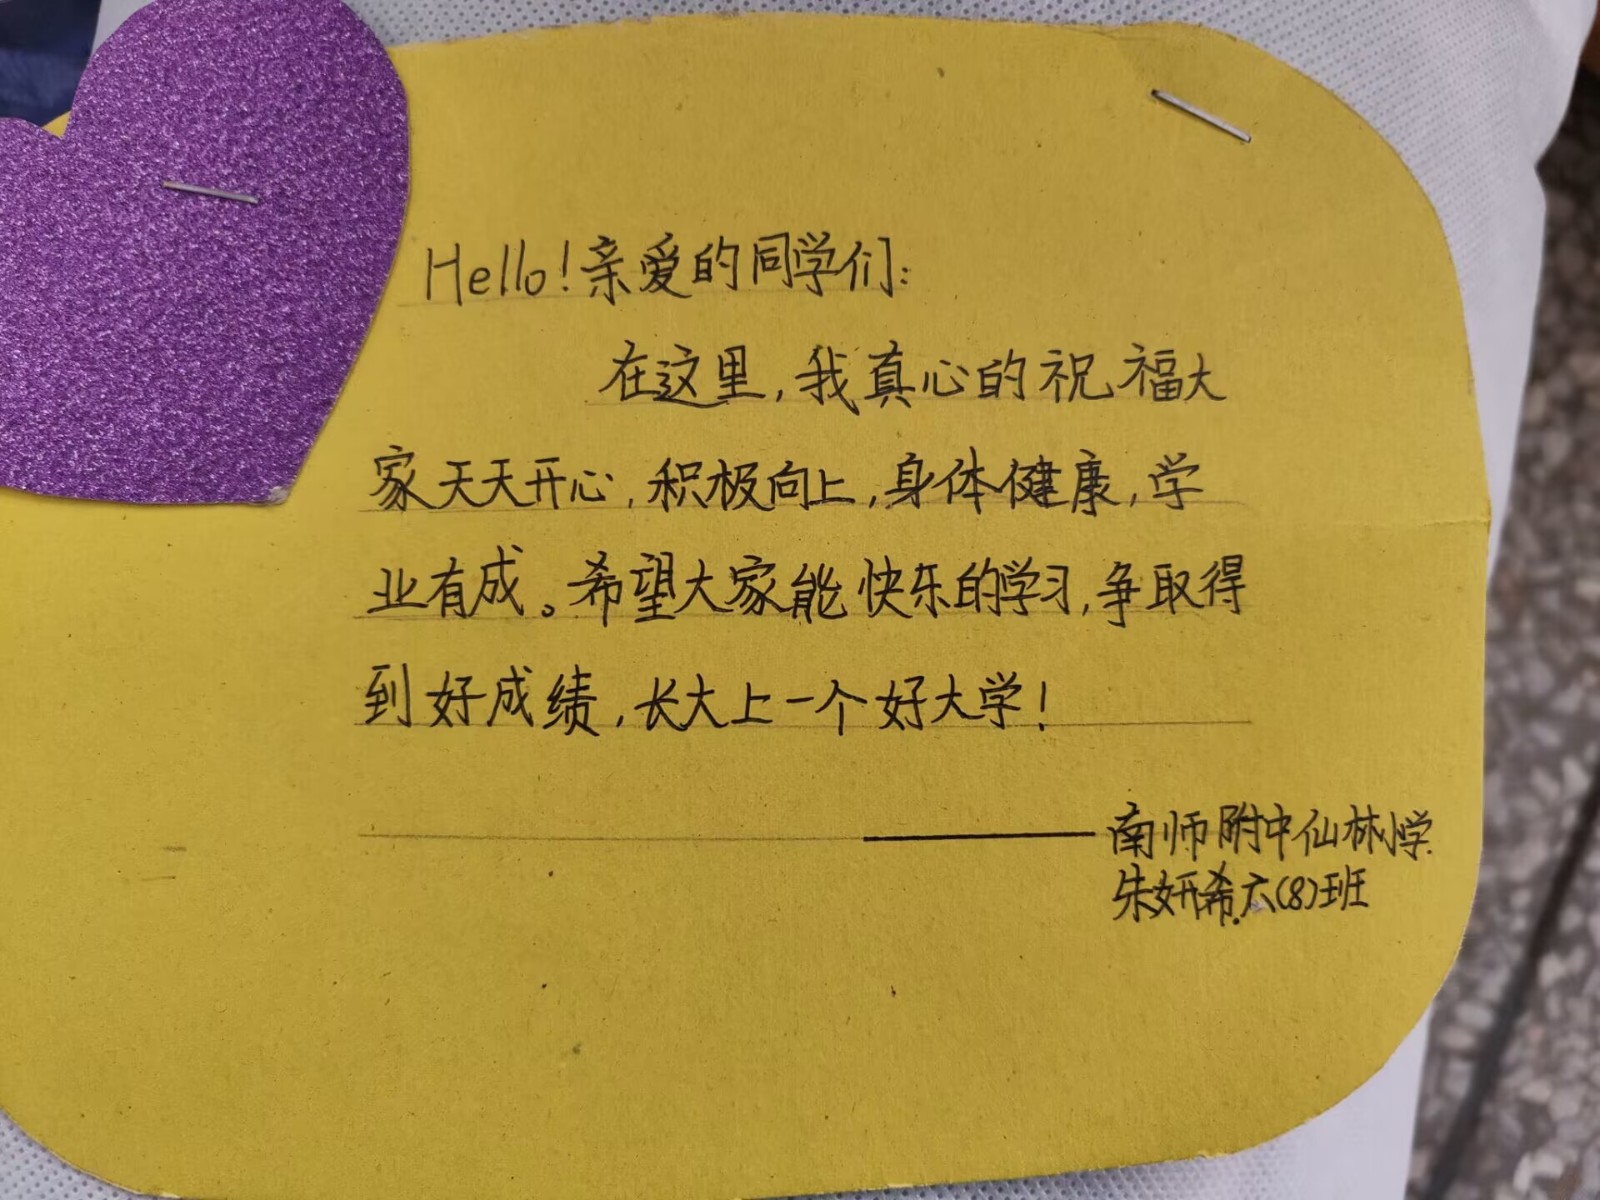 Hello!亲爱的同学们:
在这里,我真心的祝福大
家天天开心,积极向上,身体健康,学
业有成。希望大家能快乐的学习,争取得
到好成绩,长大上一个好大学!
——南师附中仙林小学.
朱妍希.六(8)班